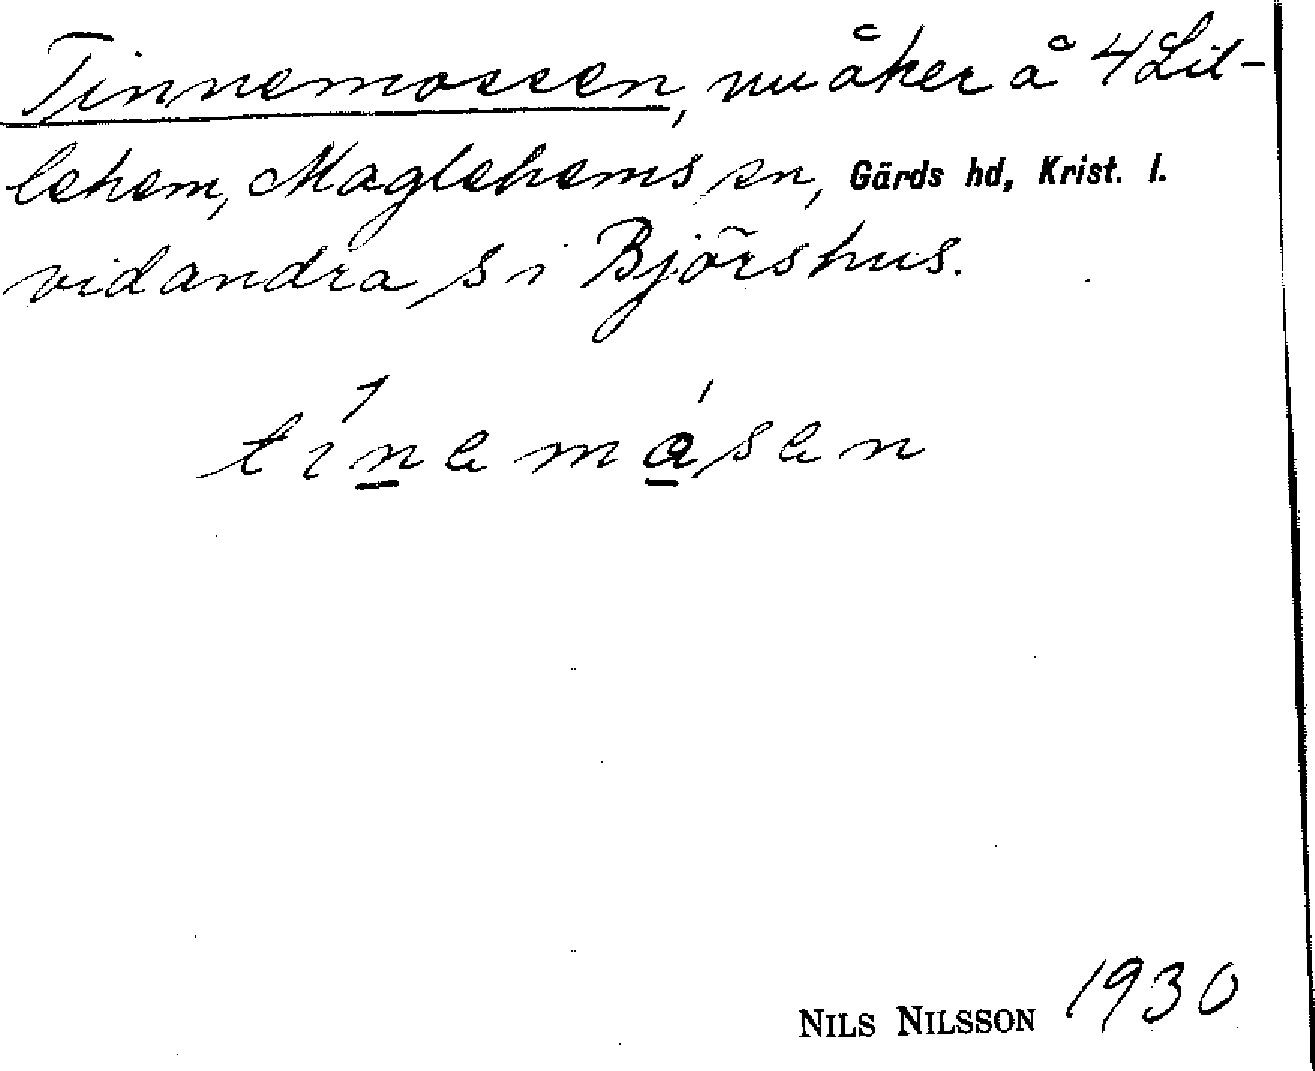 Tinnemossen, nu åker å 4 Lil-
lehem, Maglehems sn, Gärds hd, Krist. l.
vidandra, S i Björshus.
tinemåsen
NILS NILSSON 1930